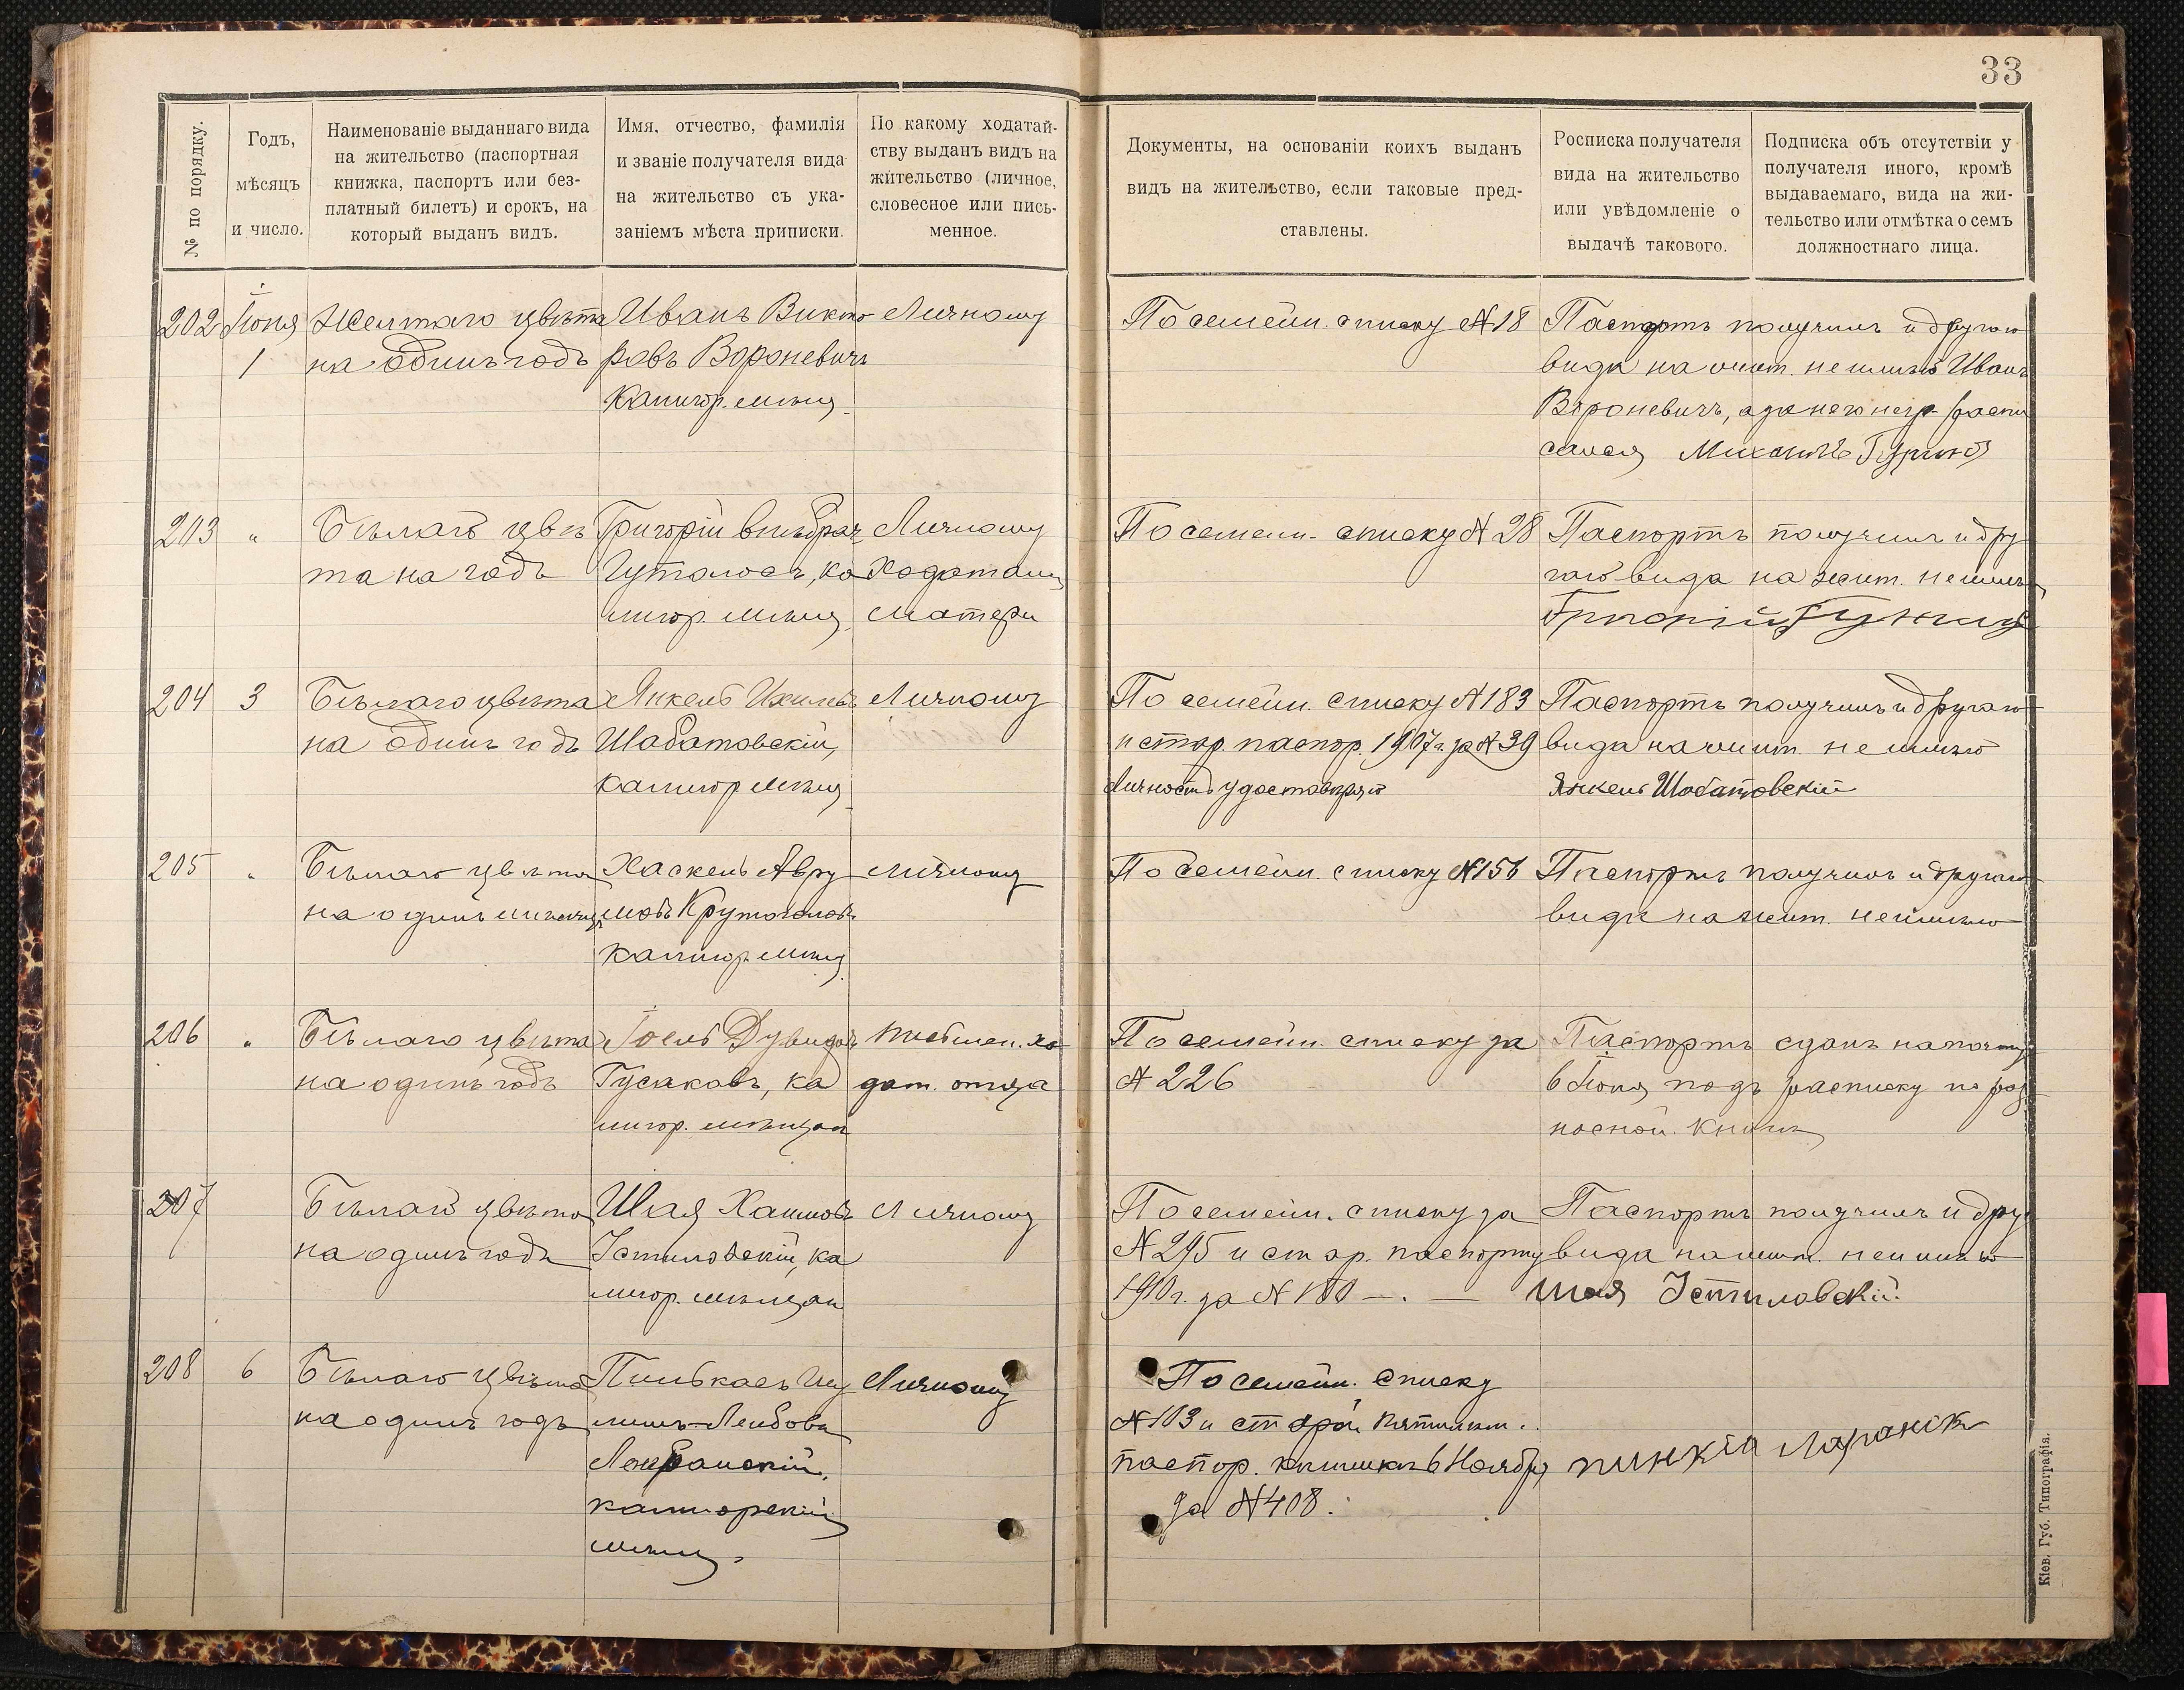 33
№ по порядку.
Годъ,
мѣсяцъ
и число.
Наименованіе выданнаго вида
на жительство (паспортная
книжка, паспортъ или без-
платный билетъ) и срокъ, на
который выданъ видъ.
Имя, отчество, фамилія
и званіе получателя вида
на жительство съ ука-
заніемъ мѣста приписки.
По какому ходатай-
ству выданъ видъ на
жительство (личное,
словесное или пись-
менное.
Документы, на основаніи коихъ выданъ
видъ на жительство, если таковые пред-
ставлены.
Росписка получателя
вида на жительство
или увѣдомленіе о
выдачѣ такового.
Подписка объ отсутствіи у
получателя иного, кромѣ
выдаваемаго, вида на жи-
тельство или отмѣтка о семъ
должностнаго лица.
202
Іюня
1
Желтаго цвѣта
на одинъ годъ
Иванъ Викто
ровъ Вороневичъ
Калигор. мѣщ.
Личному
По семейн. списку № 18
Паспортъ получилъ и другого
вида на жит. не имѣю Иванъ
Вороневичъ, а за него негр. распи
сался Михаилъ
203 "
Бѣлаго цвѣ
та на годъ
Григорій внѣбрач
ка
лигор. мѣщ.
Личному
Ходатаин
матери
По семейн. списку № 28
Паспортъ получилъ и дру
гого вида на жит. не имѣю
Григорій
204 3
Бѣлаго цвѣта
на одинъ годъ
Янкель
Шабатовскій,
Калигор мѣщ.
Личному
По семейн. списку № 183
и стар. паспор. 1907 г. за № 39
Личность удостовѣряю
Паспортъ получилъ и другого
вида на жит. не имѣю
Янкель Шабатовскій
205 "
Бѣлаго цвѣта
на одинъ мѣсяцъ
Хаскель Авру
мовъ Крутоголовъ
Калигор. мѣщ.
Личному
По семейн. списку № 156
Паспортъ получилъ и другого
вида на жит. не имѣю
206 "
Бѣлаго цвѣта
на одинъ годъ
Іоель Дувидовъ
Гусаковъ, ка
лигор. мѣщан
Письмен. хо
дат. отца
По семейн. списку за
№ 226
Паспортъ сданъ на почту
6 Іюня подъ расписку по раз
носной книгѣ
207
Бѣлаго цвѣта
на одинъ годъ
Шая Хаимовъ
Істиловскій, ка
лигор. мѣщан
Личному
По семейн. списку за
№ 295 и стар. паспорту
1910 г. за № 180 —.—
Паспортъ получилъ и друг
вида на жит. не имѣю
Шая Істиловскій
208 6
Бѣлаго цвѣта
на одинъ годъ
Пинькасъ
Лейбовъ
калигорскій
мѣщ.
Личному
По семейн. списку
№ 103 и старой пятилѣт.
паспор. книжкѣ 6 Ноября
за № 408.
Кіев. Губ. Типографія.